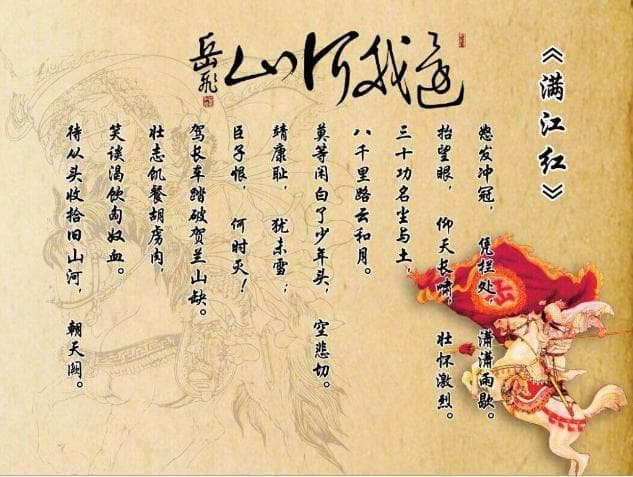 還我河山
岳飛
《满江红》
怒发冲冠， 凭栏处， 潇潇雨歇。
抬望眼， 仰天长啸， 壮怀激烈。
三十功名尘与土，
八千里路云和月。
莫等闲白了少年头， 空悲切。
靖康耻， 犹未雪；
臣子恨， 何时灭！
驾长车踏破贺兰山缺。
壮志饥餐胡虏肉，
笑谈渴饮匈奴血。
待从头收拾旧山河， 朝天阙。